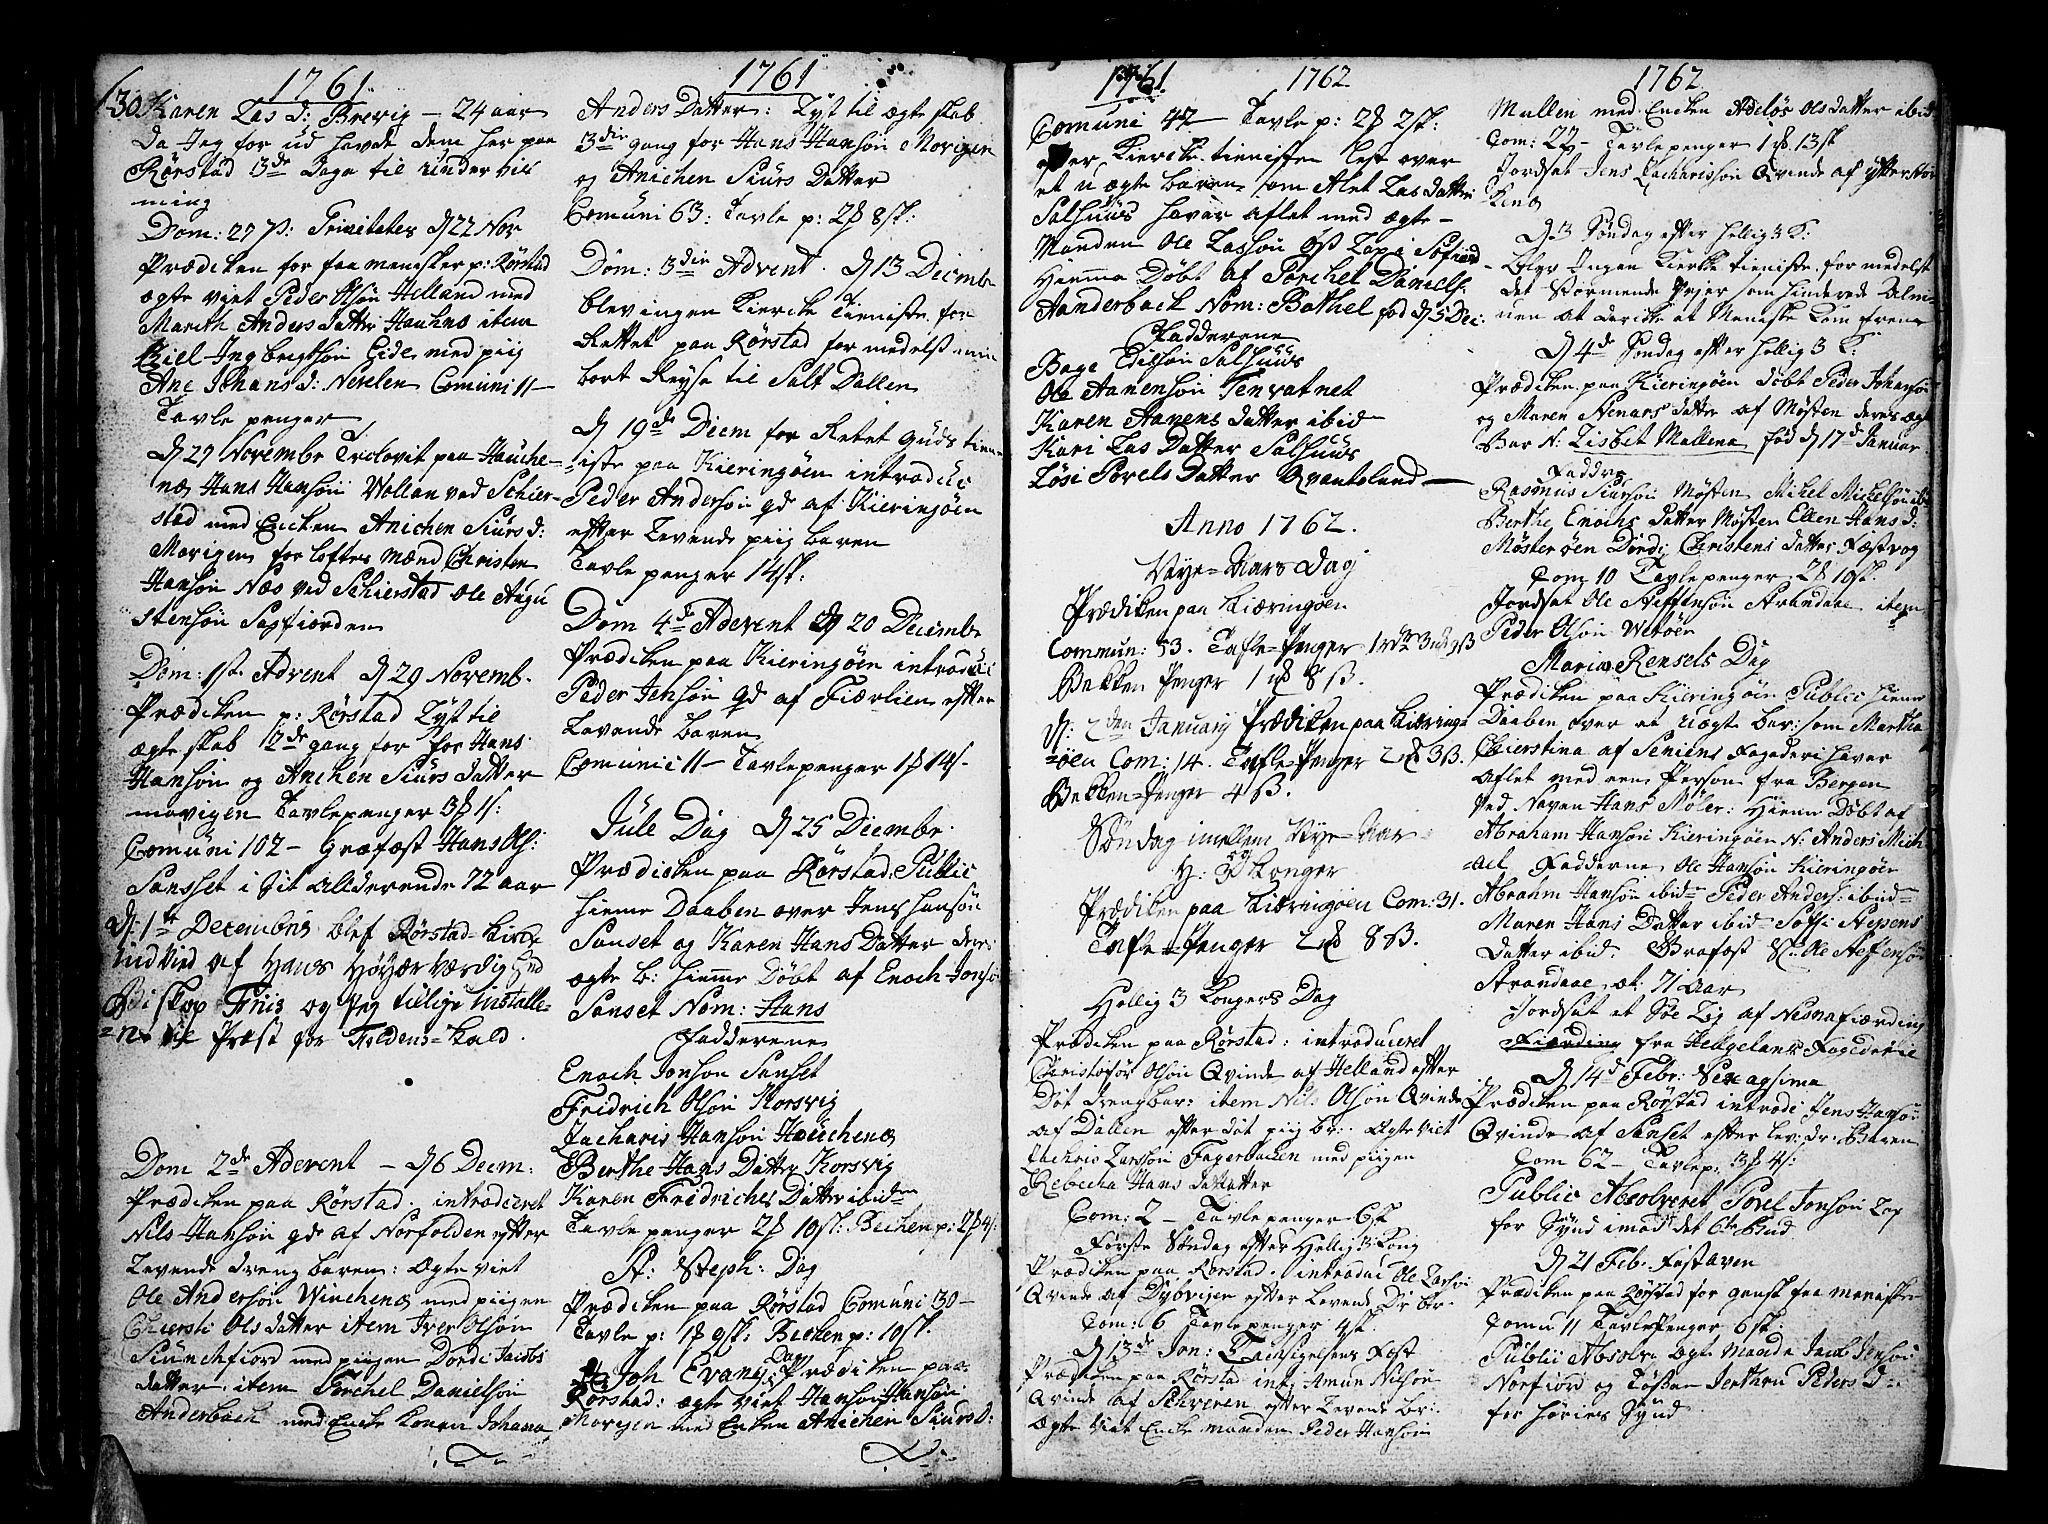 1761
30 Karen Las d: Brevig - 24 aar
Da Jeg for ud havde dem her paa
Rørstad 3de Dage til underviis
ning
Dom: 27 p: Trinitates d 22 Nov
Prædiken for faa mennisker p: Rørstad
ægte viet Peder Olsøn Helland med
Marith Anders Datter Hauknes item
Kiel Ingbrigtsøn Eide med piig
Ane Johans d: Neselen Comuni 11 -
Tavle penger
d 27 Novembr Trolovit paa Hauche-
næs Hans Hansøn Vollan ved Schier-
stad med Encken Anichen Siurs d:
Morigen forlofters mænd Christen
Hansøn Næs ved Schierstad Ole Augu
stensøn Sagfiorden
Dom: 1ste Advent d 29 Novemb.
Prædiken p: Rørstad Lyst til
ægte skab 2de gang for for Hans
Hansøn og Anichen Siurs datter
morigen Tavlepenger 3 # 1 s:
Comuni 102 - Grafæst Hans Ols:
Sanset i sit allderende 72 aar
d: 1te Decembris blef Rørstad Kirke
indvied af Hans Høyærværdighed
Biskop Friis og Jeg tillige installe-
=ret Præst for Foldens=Kald.
Dom 2de Advent - d 6 Decm:
Prædiken paa Rørstad. introduceret
Nils Hansøn qd af Norfolden efter
Levende dreng baren: Ægte viet
Ole Andersøn Winchenes med piigen
Chiersti Ols datter item Iver Olsøn
Siunchfiord med piigen Dordi Jacobs
datter item Torchel Danielson
Anderbach med Encke Karen Johana
1761
Anders Datter: Lyst til ægte skab
3die gang for Hans Hansøn Morigen
og Anichen Siurs Datter
Comuni 63: Tavle p: 2 # 8 sk:
Dom: 3die Advent. d 13 Decmbr
blev ingen Kiercke Tieniste for
Rettet paa Rørstad formedelst min
bort Reyse til Salt Dallen
d 19de Decm for Retet Guds tien
iste paa Kieringøen introduc
Peder Andersøn qd af Kieringøen
efter Levende piig baren
Tavle penger 14 sk:
Dom 4de Advent d 20 Decmbr
Prædiken paa Kieringøen introduc
Peder Jensøn qd af Fiærlien efter
Levende baren
Comunici 11 - Tavlepenger 1 # 14 s.
Jule Dag d 25 Decmbr.
Prædicken paa Rørstad. Public
hieme Daaben over Jens Hansøn
Sanset og Karen Hans Datter deres
ægte b: hieme Døbt af Enoch Jonsø
Sanset Nom: Hans
Fadderene
Enoch Jonson Sanset
Fridrich Olsøn Korsvig
Zacharis Hansøn Hauchenes
Berthe Hans Datter Korsvig
Karen Fridriches Datter ibidem
Tavle penger 2 # 10 sk: Bechen p: 2 # 4 s:
St: Steph: Dag
Prædicken paa Rørstad Comuni 30 -
Tavle p: 1 # 9 sk: Bechen p: 10 sk.
Joh Evang: Dag Prædiken paa
Rørstad: ægte viet Hanson Hansøn
Morigen med Encken Anichen Siurs D:
1761 1762
Comuni 47 - Tavle p: 2 # 2 sk:
efter Kiercke tienisten lest over
et u ægte baren som Alet Las datter
Salhuus havær aflet med ægte-
Manden Ole Lassøn
Hiemma Døbt af Torchel Daniels.
Aanderback Nom: Bathel fød d 5 Dec:
Fadderene
Bage Edisøn Salhuus
Ole Aanensøn Tenvatnet
Karen Aanens datter ibid
Kari Las Datter Salhuus
Løsi Porels Datter Qvantoland
Anno 1762.
Nye=Aars Dag
Prædiken paa Kieringøen
Commun: 53. Tafle=Penger 1 rdr 3 mk 9 ß
Bekken Penger 1 mk 8 ß.
d: 2den January Prædiken paa Kieringe
=øen Com: 14. Tafle Penger 2 mk 3 ß.
Bekken=Penger 4 ß.
Søndag imellem Nye=Aar
og H: 3 Konger
Prædiken paa Kieringøen Com: 31.
Tafle=Penger 2 mk 8 ß.
Hellig 3 Kongers Dag
Prædiken paa Rørstad: introduceret
Christofør Olsøn Qvinde af Helland efter
Døt drengbar: item Nils Olsøn Qvinde
af Dallen efter død piig br: Ægte viet
Zachris Larsøn Fagerbacken med piigen
Rebecha Hans datatter
Com: 2 - Tavlepenger 6 sk
Første Søndag efter Hellig 3 Kong
Prædicken paa Rørstad. introduc Ole Larsøn
Qvinde af Dybvigen efter Levend Dr br:
Com: 6 Tavlepenger 4 sk.
d 13de Jan: Tacksigelsens Fæst
Prædiken paa Rørstad int: Amun Nilsøn
Qvinde af Schreven efter Levens br:
Ægte Viet Encke manden Peder Hansøn
1762
Mullen med Encken Adeløs Ols datter ibid
Com: 27 - Tavlepenger 1 # 13 sk
Jordsat Jens Zacharissøn Qvinde af ytter
d 3 Søndag efter Hellig 3 K:
Blev Ingen Kiercke tieniste formedelst
det Stormende Vejer som hinderede Alm=
uen at der icke et Meniske kom frem
d 4de Søndag efter hellig 3 K:
Prædicken paa Kieringøen døbt Peder Johansøn
og Maren Stenars datter af Møsten deres ægte
Bar N: Lisbet Mallena fød d 17d Januar
Faddre
Rasmus Siursøn Møsten Michel Michelsøn ibid
Berthe Enochs datter Møsten Ellen Hans d:
Møsterøen Dordi Christens datter Fæstvog
Com 10 Tavlepenger 2 # 10 sk.
Jordsat Ole Steffensøn Strandaae item
Peder Olsøn Wetøen
Mariæ Rensels Dag
Prædicken paa Kieringøen Public hieme
Daaben over et Uægte bar: som Martha
Chierstina af Seniens Fogederi haver
Aflet med een Person fra Bergen
Ved Naven Hans Møler: Hiemm Døbt af
Abraham Hansøn Kieringøen N: Anders Mich
ael Fadderne Ole Hansøn Kieringøen
Abraham Hansøn ibidm Peder Anders: ibidm
Maren Hans Datter ibid Sofi Nessens
datter ibid. Grafæst S: Ole Steffensøn
Strandaae æt: 71 Aar
Jordsat et Søe Lig af Nesnafiærding
Fiærding fra Helgelans Fogederie
d 14d Febr: Sexagsima
Prædicken paa Rørstad introd: Jens Hansøn
Qvinde af Sanset efter lev: dr: Baren
Com 62 - Tavlep: 3 # 4 s:
Public Absolveret Povel Jonsøn Løp
for Synd imod det 6te Bud
d 21 Feb. Fastaven
Prædicken paa Rørstad for gansk faa menisker
Comu 11 Tavle Penger 6 sk:
Public Absolv: Ægte Manden Jacob Jensøn
Norfiord og Tøssen Jerthru Peders d:
for hories Synd